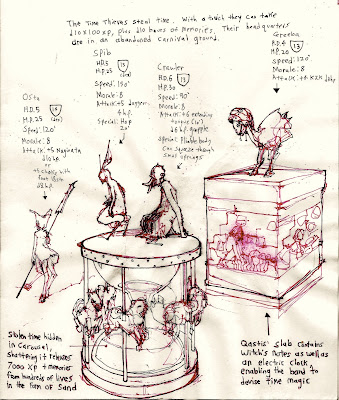 The Time Thieves steal time. With a touch they can take
d10x100xp, plus d10 hours of memories. Their headquarters
are in an abandoned Carnival ground.
Spib
H.D. 5
H.P. 25
13
Speed: 150'
Morale: 8
Attack: +5 dagger
4 h.p.
Special: Hop
20'
Crawler
H.D. 6
13
H.P. 30
Speed: 90'
Morale: 8
Attack: +6 extending
tongue (10')
d6 h.p. grapple
Special: Pliable body
Can squeeze through
small openings
Greeba
H.D. 4
13
H.P. 20
Speed: 120'
Morale: 8
Attack: +4
Osta
H.D. 5
H.P. 25
Speed: 120'
Morale: 8
Attack: +5 Naginata
d10 h.p.
or
+5 charge with
foot
d8 h.p.
Stolen time hidden
in Carousel,
shattering it releases
7000 xp & memories
from hundreds of lives
in the form of sand
Qastis' slab contains
Witch's notes as well as
an electric clock,
enabling the band to
devise time magic